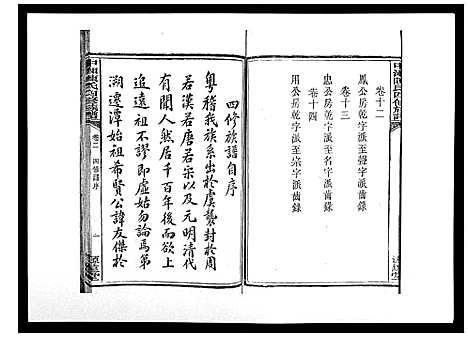 卷十二
鳳公房乾字派至聲字派齒錄
卷十三
忠公房乾字派至名字派齒錄
卷十四
用公房乾字派至崇字派齒錄
四修族譜自序
粵稽我族系出於虞襲封於周
若漢若唐若宋以及元明清代
有聞人然居千百年後而欲上
追遠祖不謬即虛姑勿論焉第
溯遷潭始祖希賢公諱友傑於
卷二
四修譜序
一